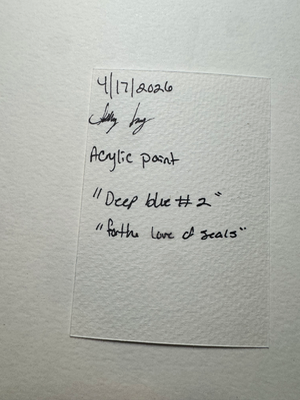 4/17/2026
Acrylic paint
"Deep blue #2"
"for the love of seals"